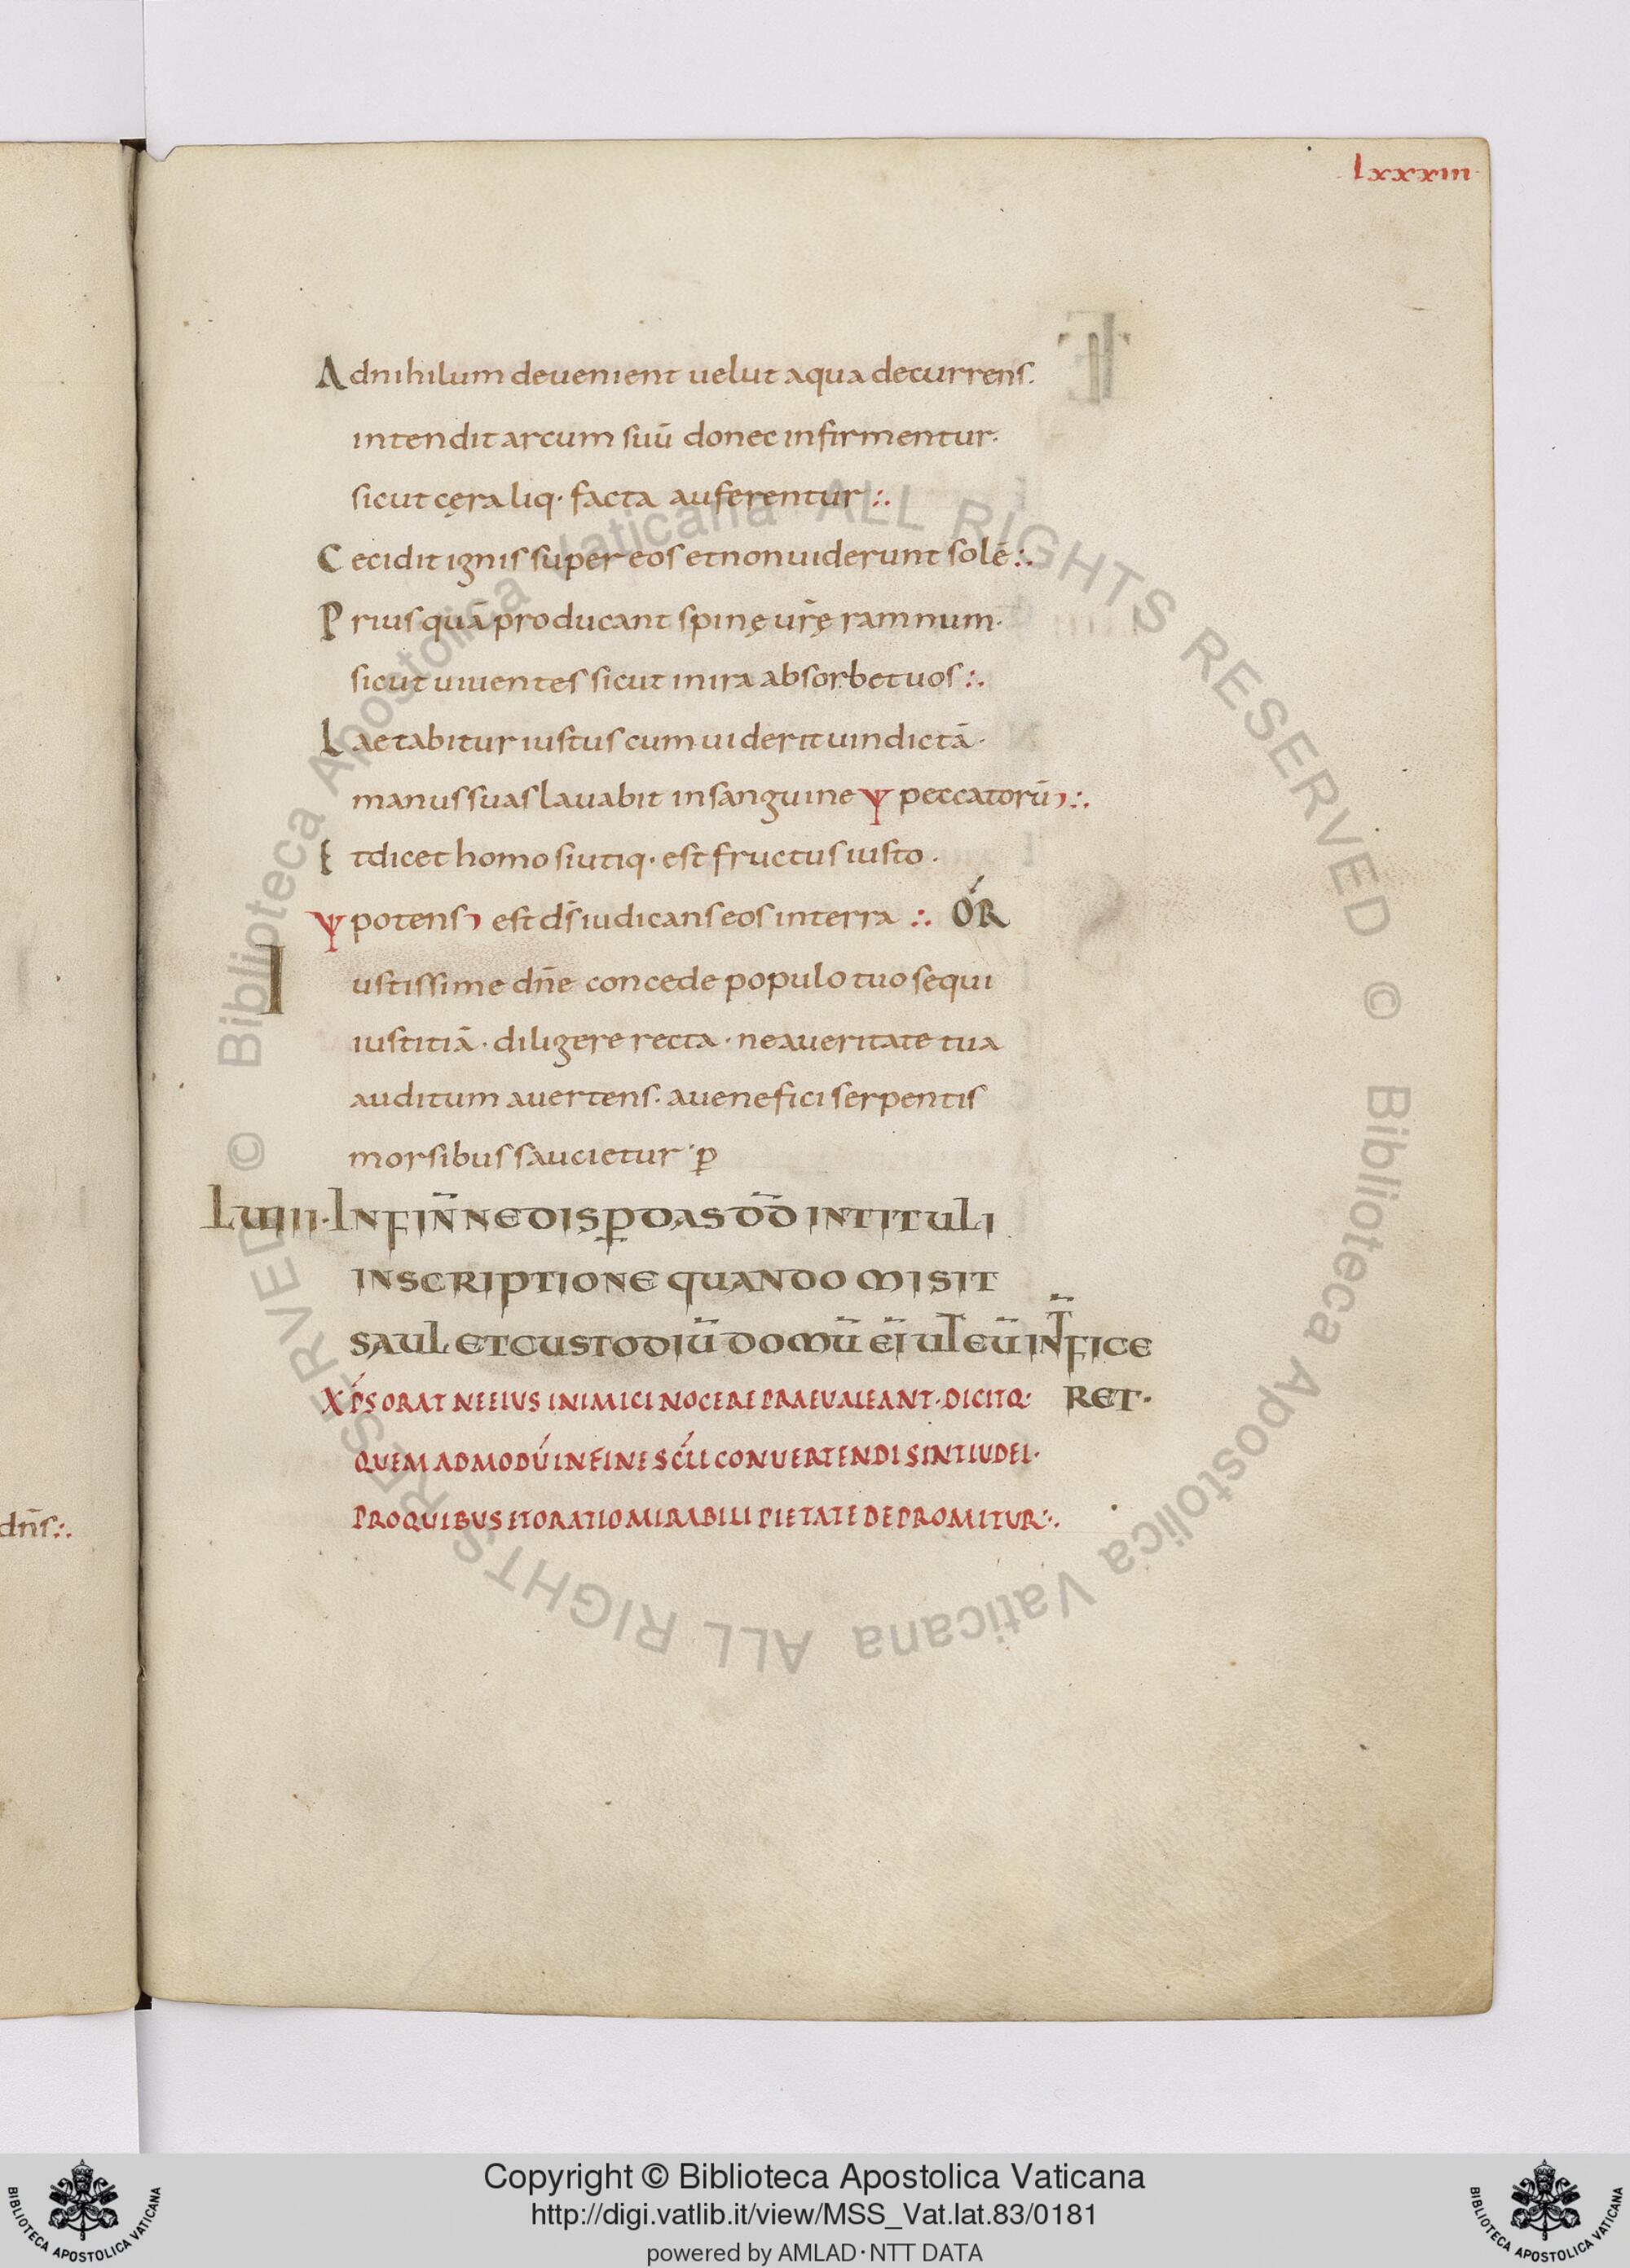 lxxxiii
Ad nihilum devenient velut aqua decurrens.
intendit arcum suū donec infirmentur.
sicut cęra liq· facta auferentur :.
Cecidit ignis super eos et non viderunt solē :.
Prius quā producant spinę vr̄ę ramnum.
sicut viventes sicut in ira absorbet vos :.
Laetabitur iustus cum viderit vindictā.
manus suas lavabit in sanguine ψ peccatorū :.
Et dicet homo si utiq· est fructus iusto.
ψ potens est d̄s iudicans eos in terra :. OR
Iustissime dn̄e concede populo tuo sequi
iustitiā · diligere recta · ne a veritate tua
auditum avertens · a venefici serpentis
morsibus saucietur · p
LVIII · IN FIN̄ NE DISP̱DAS DD̄ IN TITULI
INSCRIPTIONE QUANDO MISIT
SAUL ET CUSTODIŪ DOMŪ EĪ UT EŪ INT̄FICE
RET·
XP̄S ORAT NE EIUS INIMICI NOCERE PRAEVALEANT · DICITQ·
QUEMADMODŪ IN FINE SC̄LI CONVERTENDI SINT IUDEI·
PRO QUIBUS ET ORATIO MIRABILI PIETATE DEPROMITUR :.
dn̄s :.
© Biblioteca Apostolica Vaticana ALL RIGHTS RESERVED
© Biblioteca Apostolica Vaticana ALL RIGHTS RESERVED
BIBLIOTECA APOSTOLICA VATICANA
Copyright © Biblioteca Apostolica Vaticana
http://digi.vatlib.it/view/MSS_Vat.lat.83/0181
powered by AMLAD·NTT DATA
BIBLIOTECA APOSTOLICA VATICANA